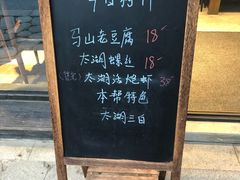 今日特价
马山老豆腐 18
太湖螺丝 18
(售完) 太湖活炝虾 38
本帮特色
太湖三白